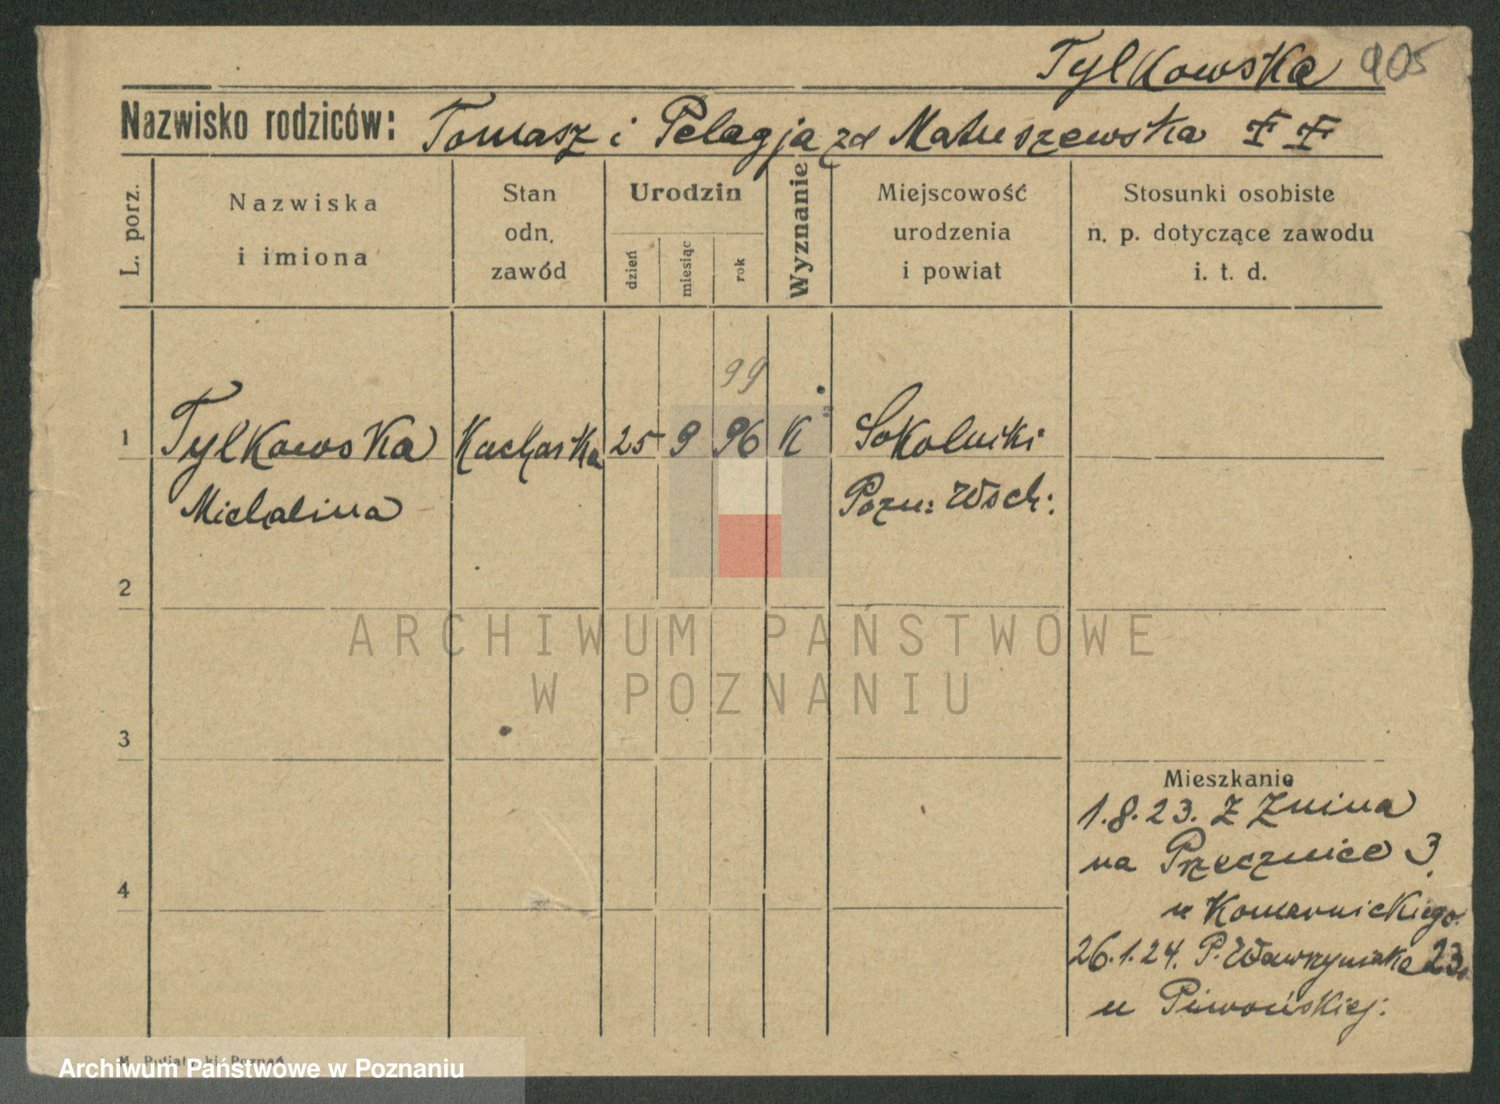 Tylkowska 905
Nazwisko rodziców: Tomasz i Pelagja zd Matuszewska ‡ ‡
L. porz.
Nazwiska
i imiona
Stan
odn.
zawód
Urodzin
dzień
miesiąc
rok
Wyznanie
Miejscowość
urodzenia
i powiat
Stosunki osobiste
n. p. dotyczące zawodu
i. t. d.
99
1 Tylkowska Kucharka 25 9 96 K Sokolniki
Michalina Pozn: Wsch:
2
ARCHIWUM PAŃSTWOWE
W POZNANIU
3
Mieszkanie
1.8.23. Z Żnina
na Przecznice 3.
4
u Komornickiego.
26.1.24. P. Wawrzyniaka 23.
u Piwońskiej:
Poznań
Archiwum Państwowe w Poznaniu